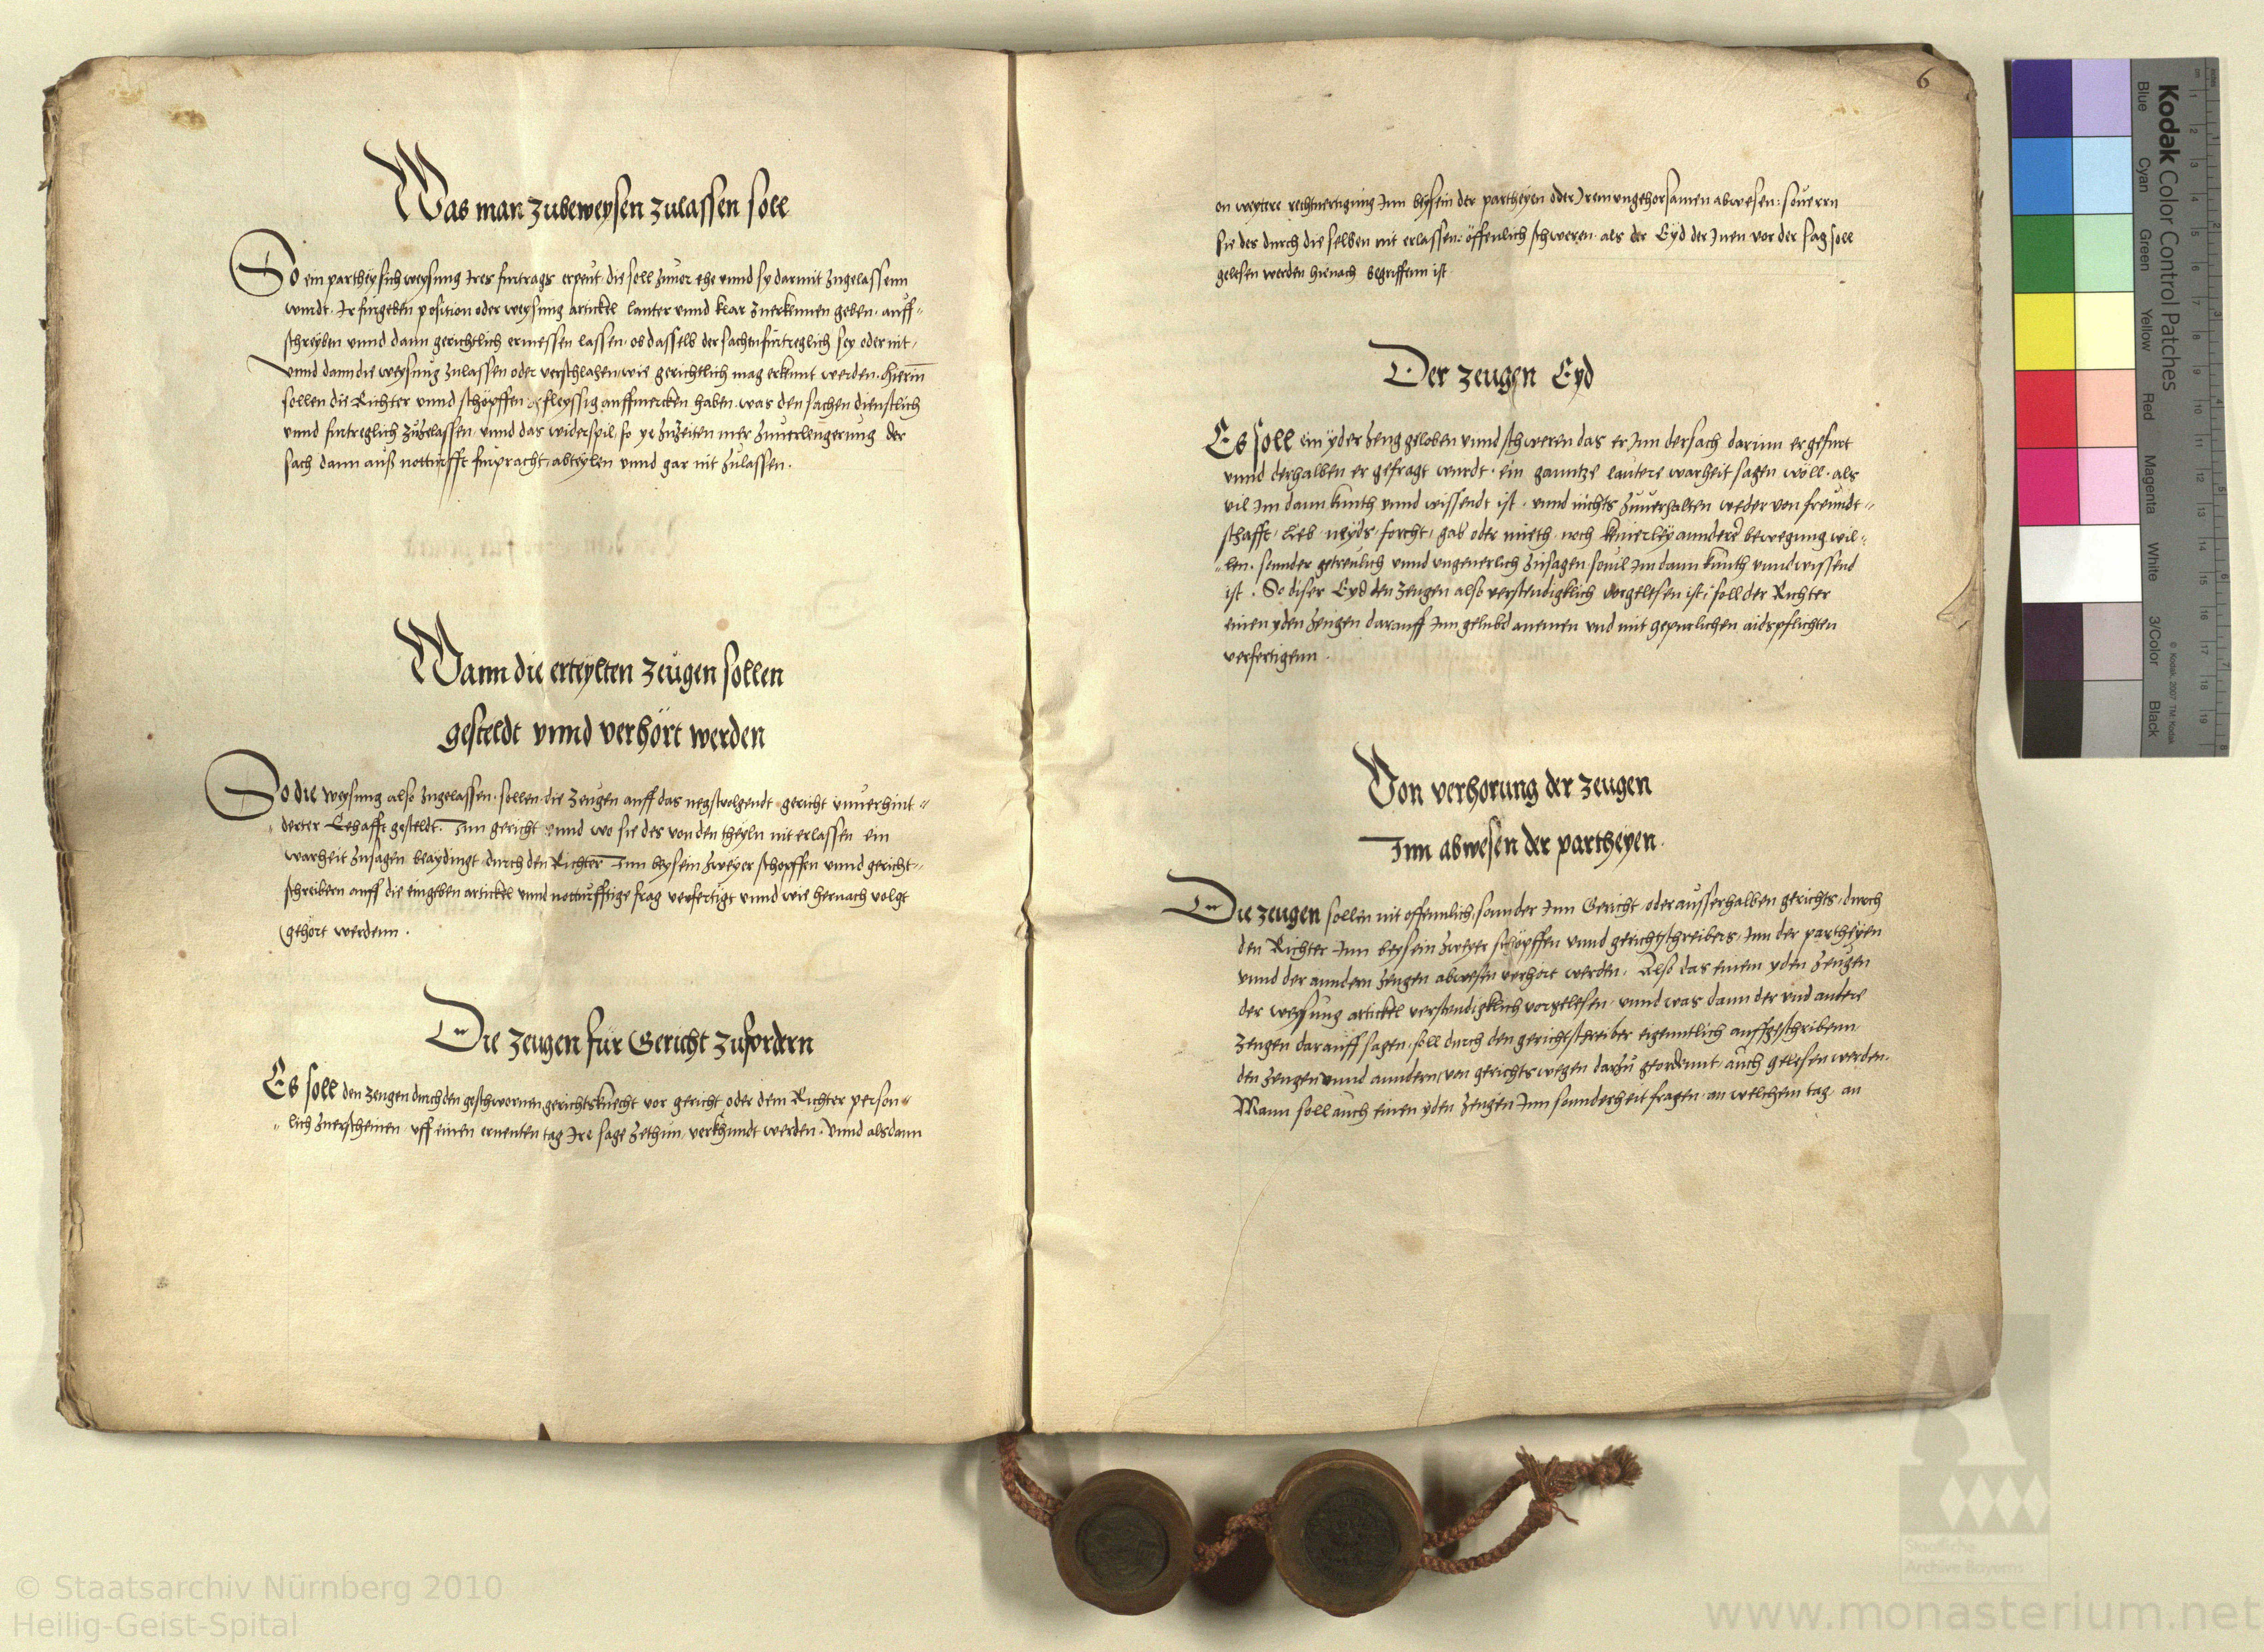 Was man zubeweysen zulassen soll
So ein parthey sich weysung ires furtrags erpeut, die soll zuuor ehe vnnd sy darmit zugelassenn
wurdt, Ir furgeben position oder weysung artickel lauter vnnd klar zuerkennen geben, auff-
schreyben vnnd dann gerichtlich ermessen lassen, ob dasselb der sachen furtreglich sey oder nit,
vnnd dann die weysung zulassen oder verschlahen, wie gerichtlich mag erkent werden. Hierin
sollen die Richter vnnd schöpffen fleyssig auffmercken haben, was den sachen dienstlich
vnnd furtreglich zugelassen, vnnd das widerspil, so ye zuzeiten mer zuuerlengerung der
sach dann auß notturfft furpracht, abteylen vnnd gar nit zulassen.
Wann die erteylten zeugen sollen
gesteldt vnnd verhört werden
So die weysung also zugelassen, sollen die zeugen auff das negstuolgendt gericht vnuerhint-
derter Eehafft gesteldt. Inn gericht vnnd wo sie des von den theyln nit erlassen ein
warheit zusagen beaydingt durch den Richter Inn beysein zweyer schopffen vnnd gericht-
schreibern auff die eingeben artickel vnnd notturfftige frag verfertigt vnnd wie hernach volgt
gehört werdenn.
Die zeugen für Gericht zufordern
Es soll den zeugen durch den geschwornen gerichtsknecht vor gericht oder dem Richter person-
lich zuerscheinen vff einen ernenten tag Ire sage zethun, verkhundt werden. Vnnd alsdann
6
on weytere rechtuertigung Inn beysein der partheyen oder Irem vngehorsamen abwesen: souerrn
sie des durch die selben nit erlassen: öffenlich schweren als der Eyd der Inen vor der sag soll
gelesen werden hienach begriffenn ist
Der zeugen Eyd
Es soll ein yder zeug geloben vnnd schweren das er Inn der sach darinn er gefurt
vnnd derhalben er gefragt wurdt, ein ganntze lautere warheit sagen wöll, als
vil Im dann kunth vnnd wissendt ist, vnnd nichts zuuerhalten weder von freundt-
schafft, lieb, neyds, forcht, gab oder mieth, noch keinerley annderer bewegung wil-
len. sonnder getreulich vnnd vngeuerlich zusagen souil Im dann kunth vnnd wissend
ist. So diser Eyd den zeugen also verstendigklich vorgelesen ist, soll der Richter
einen yden zeugen darauff Inn gelubd anemen vnd mit gepurlichen aidspflichten
verfertigenn.
Von verhorung der zeugen
Inn abwesen der partheyen.
Die zeugen sollen nit offennlich, sonnder Inn Gericht, oder ausserhalben gerichts, durch
den Richter Inn beysein zweyer schöpffen vnnd gerichtschreibers, Inn der partheyen
vnnd der anndern zeugen abwesen verhört werden. Also das einem yden zeugen
der weysung artickel verstendigklich vorgelesen, vnnd was dann der vnd andere
zeugen darauff sagen, soll durch den gerichtschreiber eigenntlich auffgeschribenn
den zeugen vnnd anndern von gerichts wegen darzu geordennt, auch gelesen werden.
Mann soll auch einen yden zeugen Inn sonnderheit fragen, an welchem tag, an
Kodak Color Control Patches
Blue Cyan Green Yellow Red Magenta White 3/Color Black
© Kodak, 2007 TM: Kodak
© Staatsarchiv Nürnberg 2010
Heilig-Geist-Spital
Staatliche
Archive Bayerns
www.monasterium.net